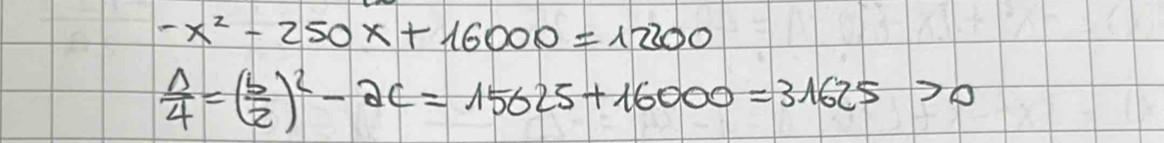 -x² - 250x + 16000 = 12200
Δ/4 = (b/2)² - ac = 15625 + 16000 = 31625 > 0